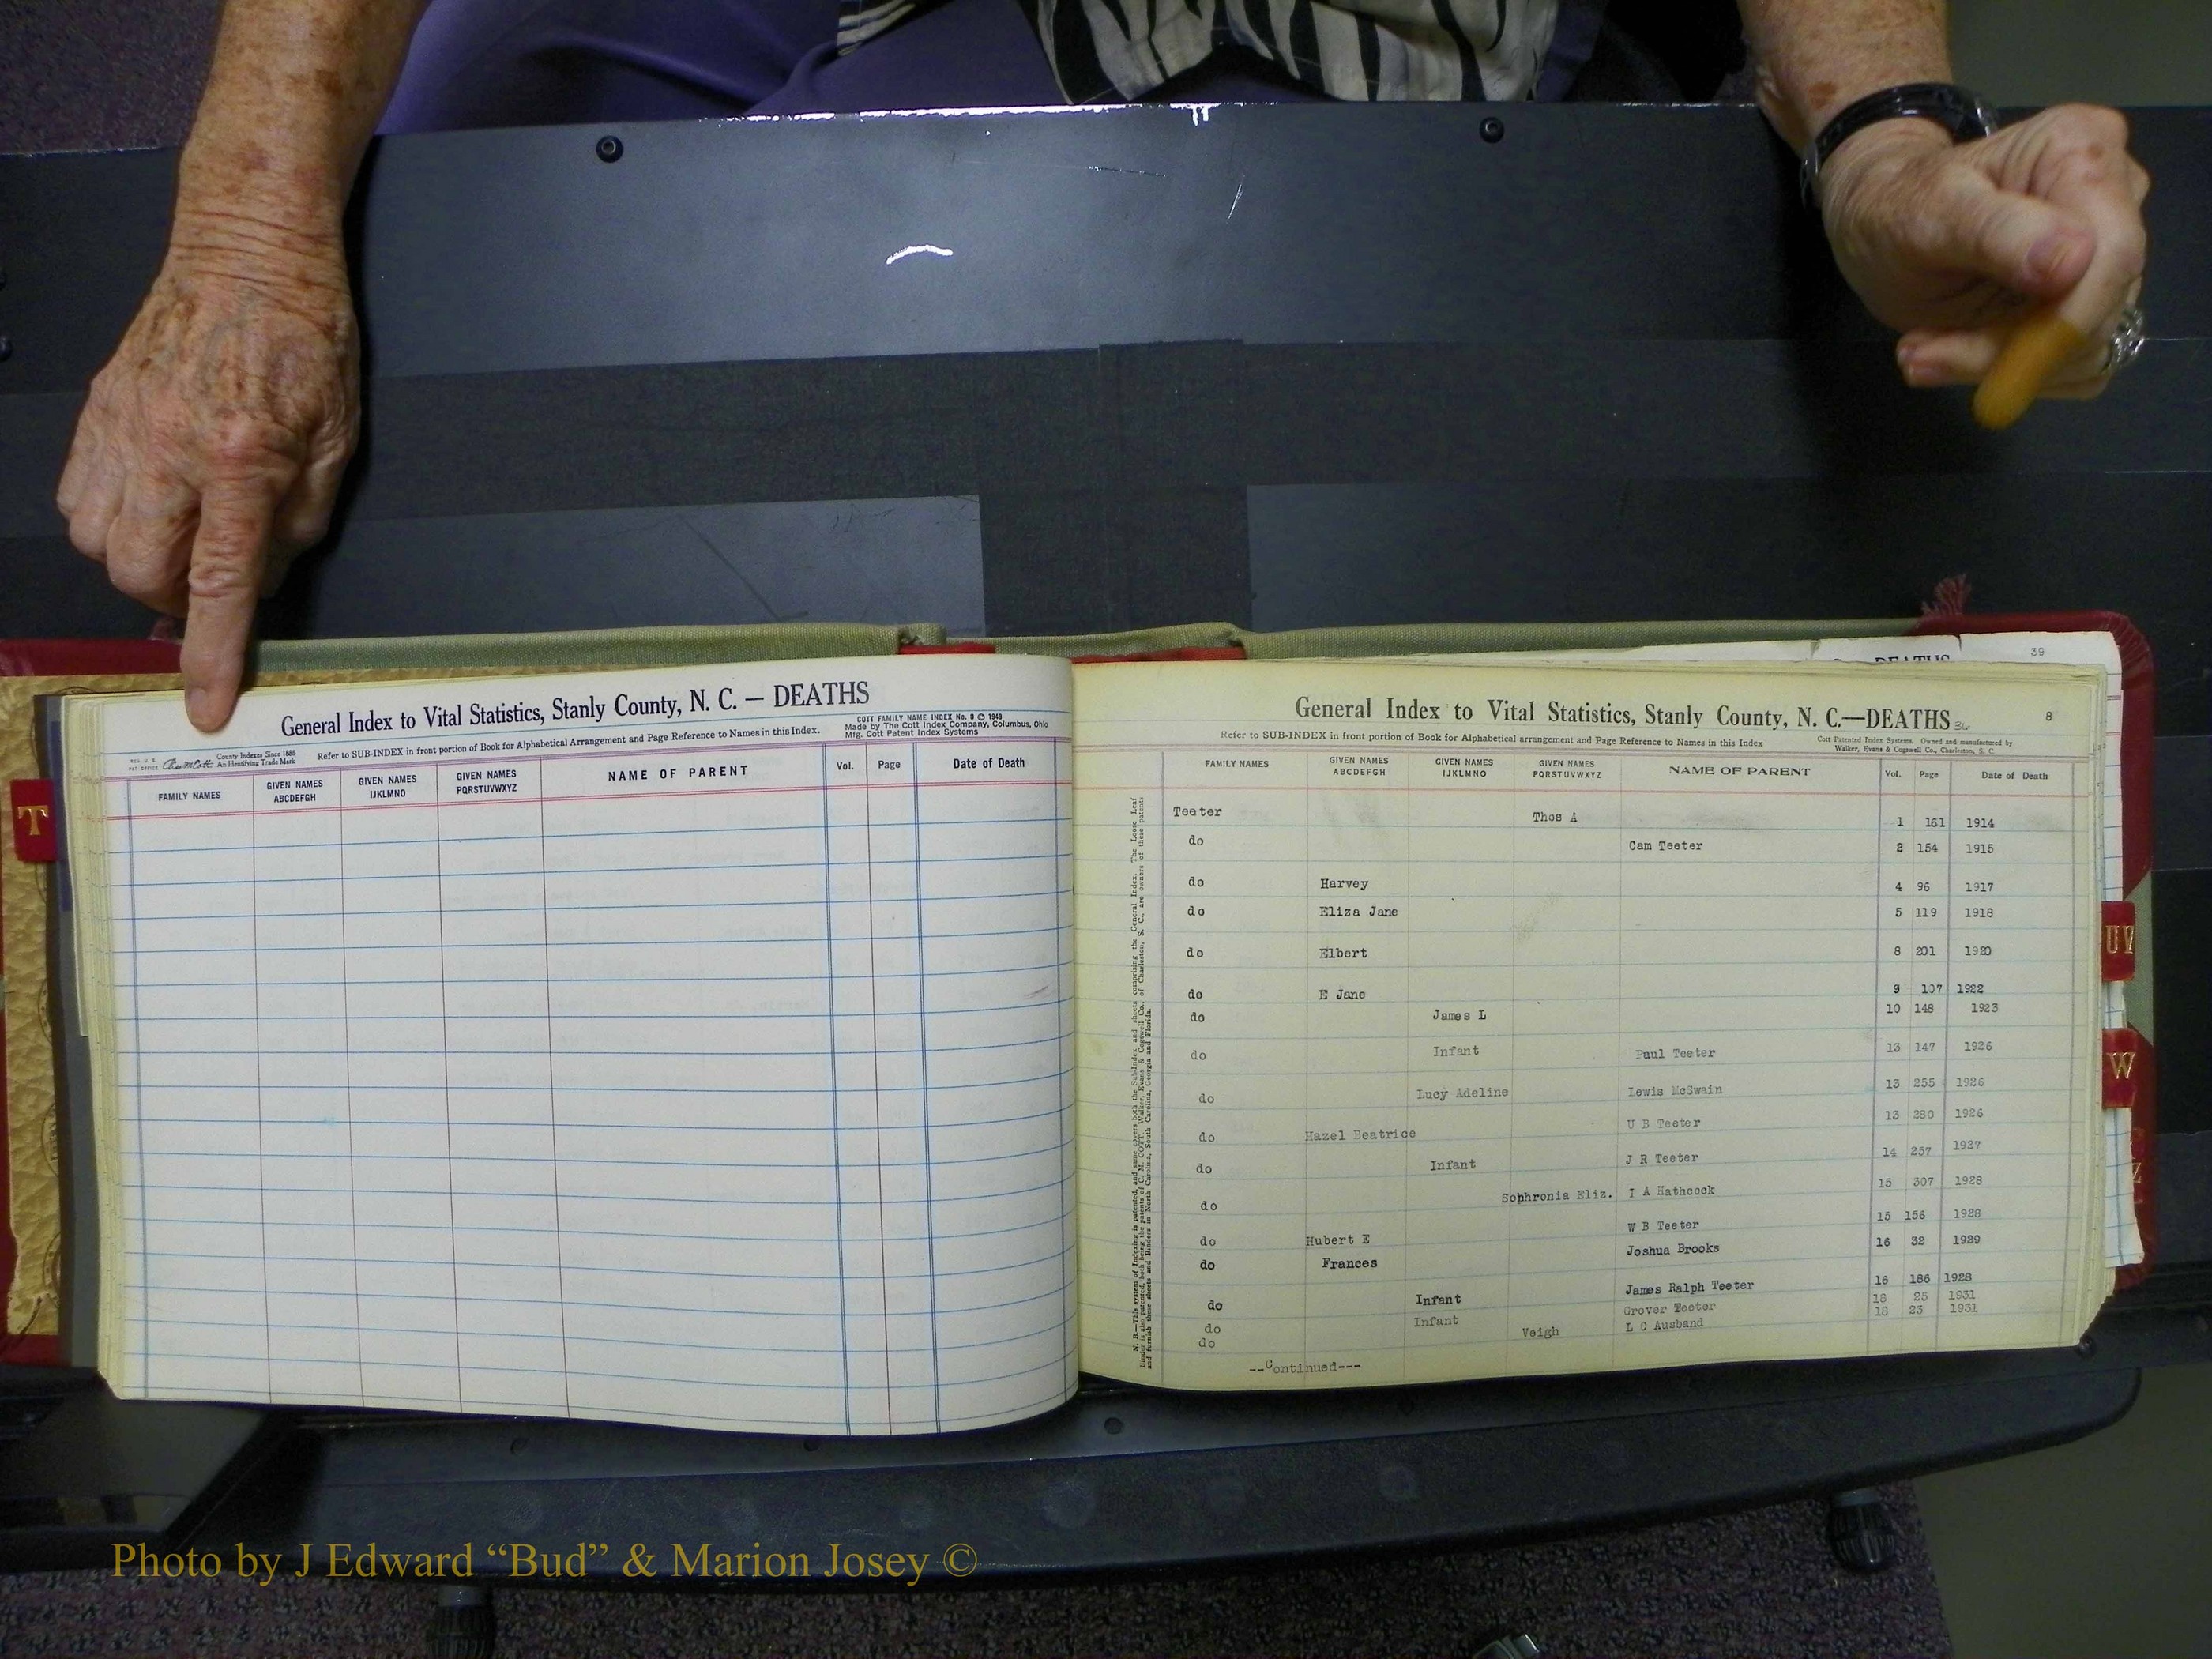 General Index to Vital Statistics, Stanly County, N. C. — DEATHS
COTT FAMILY NAME INDEX No. 9 © 1949
Made by The Cott Index Company, Columbus, Ohio
Mfg. Cott Patent Index Systems
County Indexes Since 1888
An Identifying Trade Mark
Refer to SUB-INDEX in front portion of Book for Alphabetical Arrangement and Page Reference to Names in this Index.
FAMILY NAMES GIVEN NAMES ABCDEFGH GIVEN NAMES IJKLMNO GIVEN NAMES PQRSTUVWXYZ NAME OF PARENT Vol. Page Date of Death
T
39
DEATHS
General Index to Vital Statistics, Stanly County, N. C.—DEATHS 36
8
Refer to SUB-INDEX in front portion of Book for Alphabetical arrangement and Page Reference to Names in this Index
Cott Patented Index Systems. Owned and manufactured by
Walker, Evans & Cogswell Co., Charleston, S. C.
FAMILY NAMES GIVEN NAMES ABCDEFGH GIVEN NAMES IJKLMNO GIVEN NAMES PQRSTUVWXYZ NAME OF PARENT Vol. Page Date of Death
Teeter Thos A 1 161 1914
do Cam Teeter 2 154 1915
do Harvey 4 96 1917
do Eliza Jane 5 119 1918
do Elbert 8 201 1920
do E Jane 9 107 1922
do James L 10 148 1923
do Infant Paul Teeter 13 147 1926
do Lucy Adeline Lewis McSwain 13 255 1926
do Hazel Beatrice U B Teeter 13 280 1926
do Infant J R Teeter 14 257 1927
do Sophronia Eliz. I A Hathcock 15 307 1928
do Hubert E W B Teeter 15 156 1928
do Frances Joshua Brooks 16 32 1929
do Infant James Ralph Teeter 16 186 1928
do Infant Grover Teeter 18 25 1931
do Veigh L C Ausband 18 23 1931
--Continued---
UV
W
Z
Photo by J Edward “Bud” & Marion Josey ©